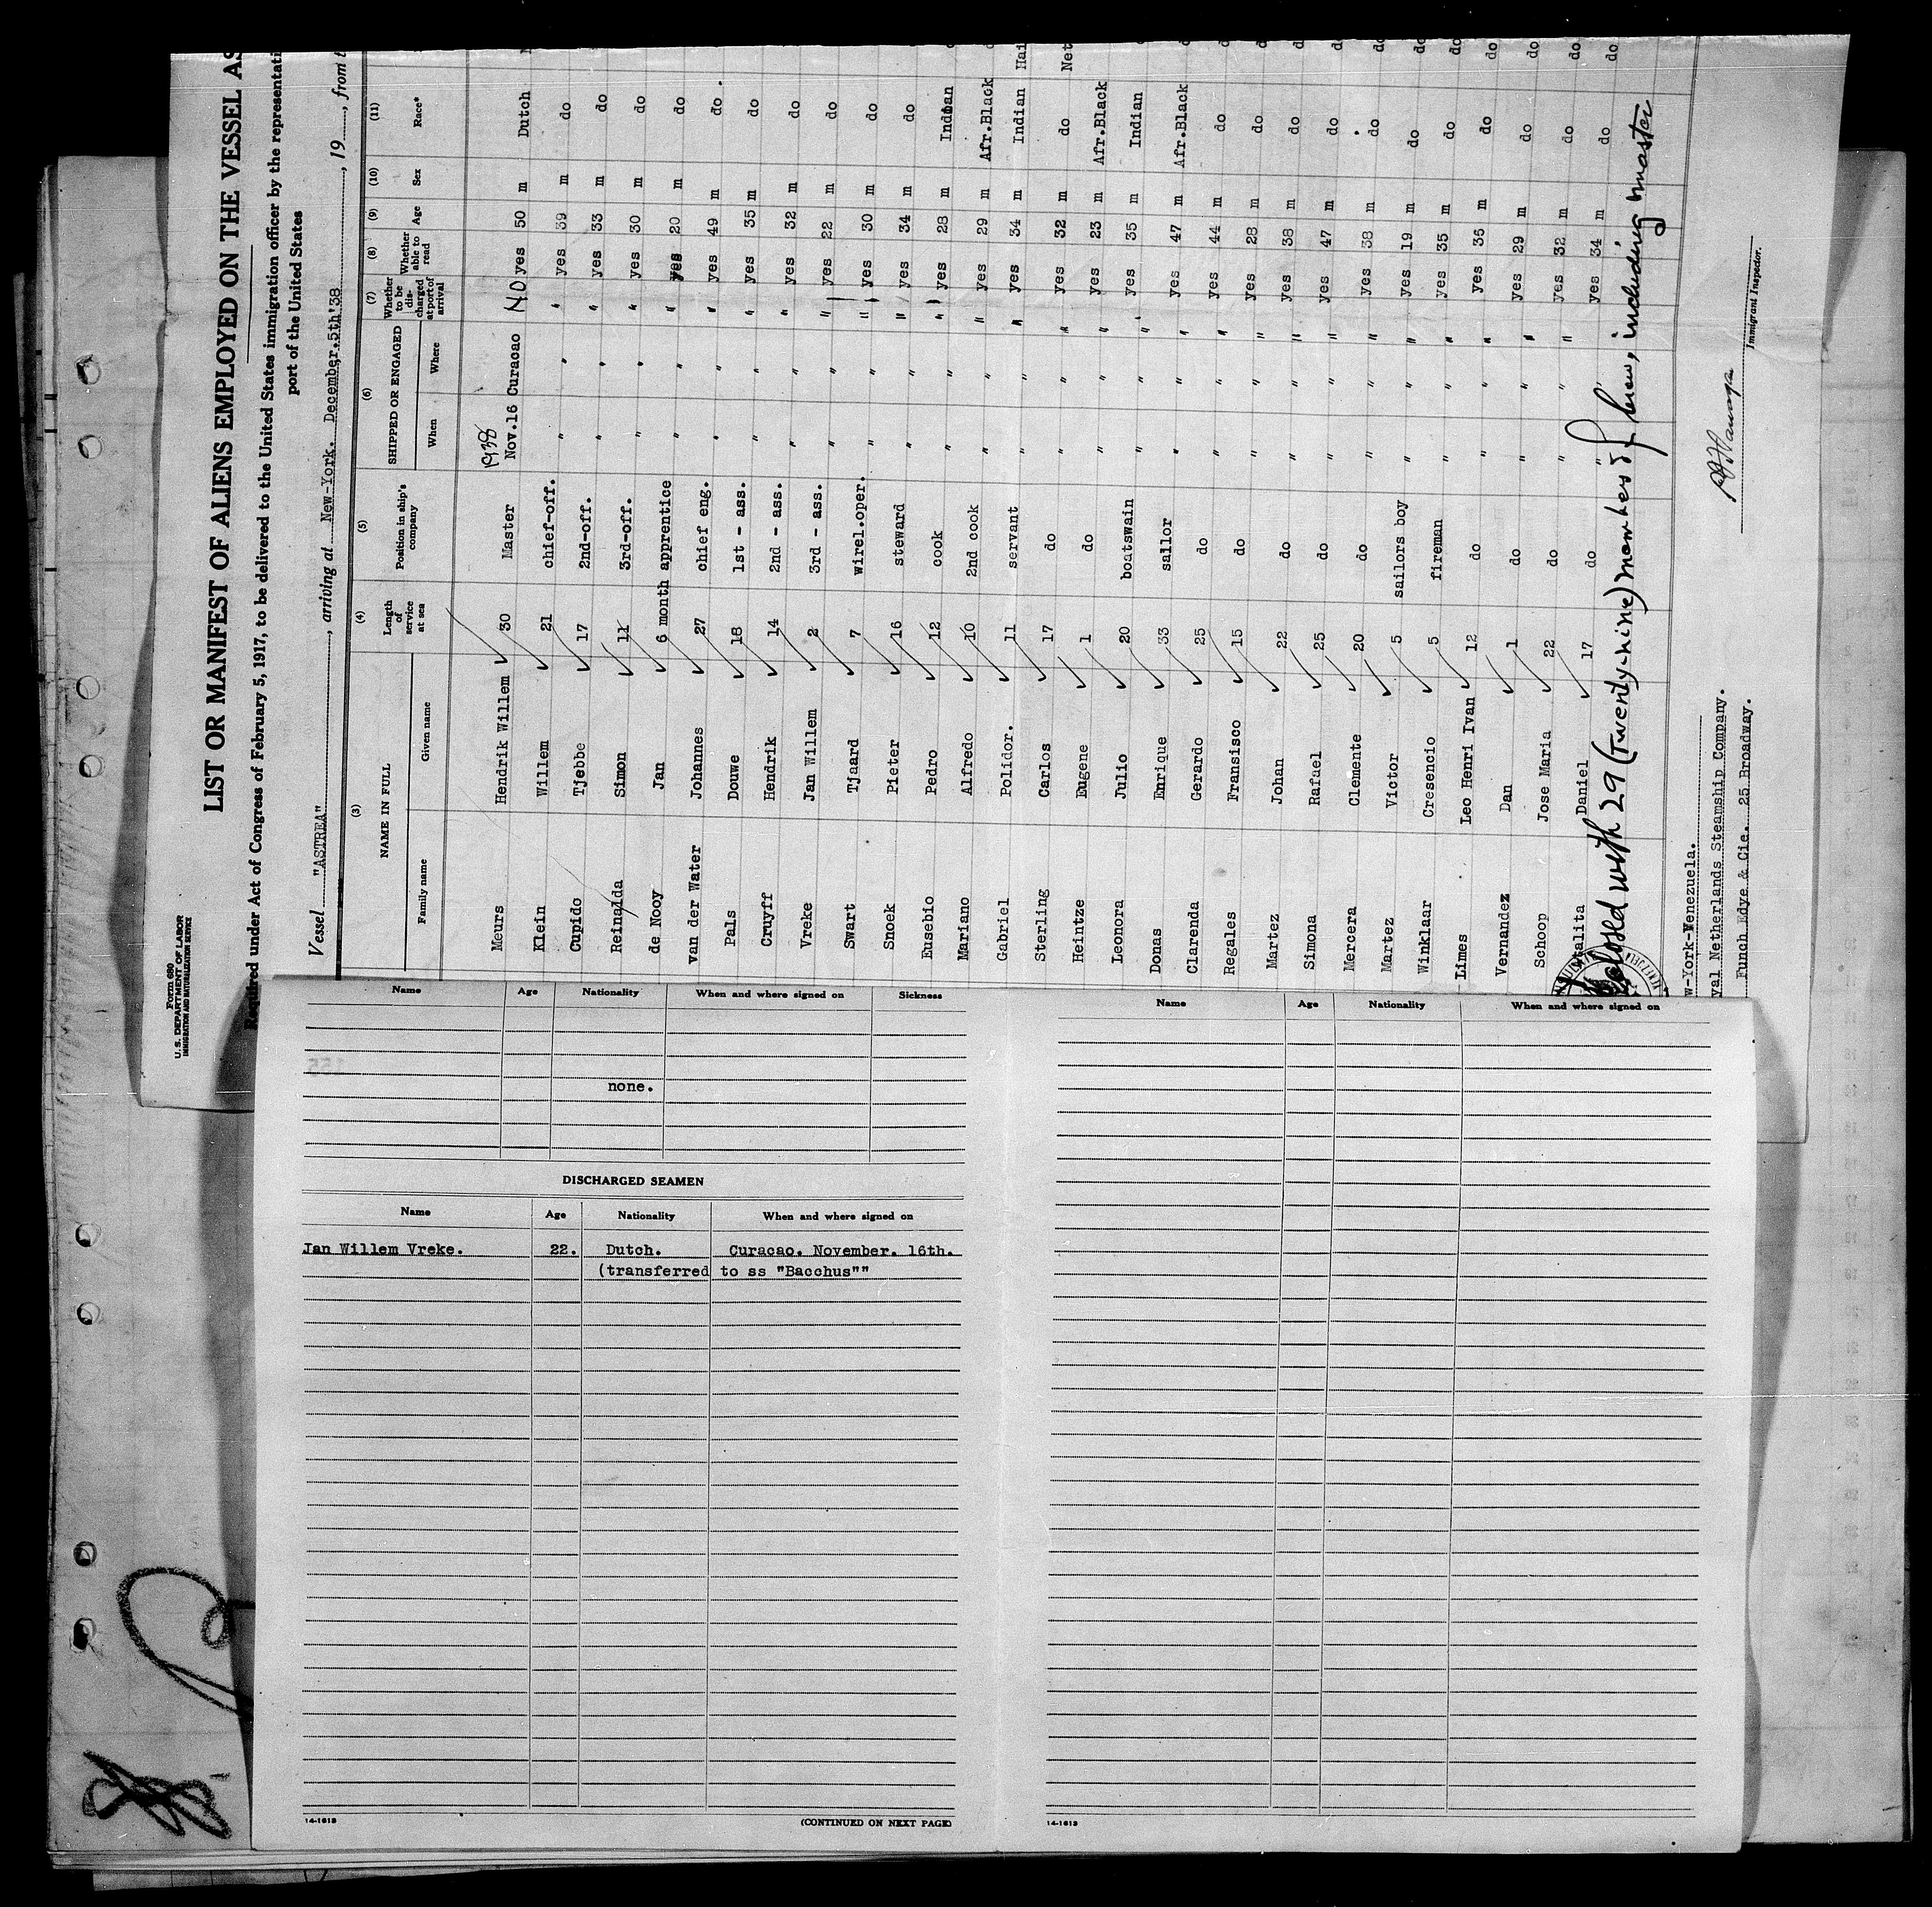 Form 680
U. S. DEPARTMENT OF LABOR
IMMIGRATION AND NATURALIZATION SERVICE
LIST OR MANIFEST OF ALIENS EMPLOYED ON THE VESSEL AS
Required under Act of Congress of February 5, 1917, to be delivered to the United States immigration officer by the representati
port of the United States
Vessel "ASTREA", arriving at New-York. December.5th'38, 19, from t
(3) (4) (5) (6) (7) (8) (9) (10) (11)
NAME IN FULL Length of service at sea Position in ship's company SHIPPED OR ENGAGED Whether to be discharged at port of arrival Whether able to read Age Sex Race*
Family name Given name When Where
1938
Meurs Hendrik Willem 30 Master Nov.16 Curacao NO yes 50 m Dutch
Klein Willem 21 chief-off. " " " yes 39 m do do
Cupido Tjebbe 17 2nd-off. " " " yes 33 m do do
Reinalda Simon 11 3rd-off. " " " yes 30 m do do
de Nooy Jan 6 month apprentice " " " yes 20 m do do
van der Water Johannes 27 chief eng. " " " yes 49 m do. do
Pals Douwe 18 1st - ass. " " " yes 35 m do do
Cruyff Hendrik 14 2nd - ass. " " " yes 32 m do do
Vreke Jan Willem 2 3rd - ass. " " " yes 22 m do do
Swart Tjaard 7 wirel.oper. " " " yes 30 m do do
Snoek Pieter 16 steward " " " yes 34 m do do
Eusebio Pedro 12 cook " " " yes 28 m Indian
Mariano Alfredo 10 2nd cook " " " yes 29 m Afr.Black
Gabriel Polidor. 11 servant " " " yes 34 m Indian Hai
Sterling Carlos 17 do " " " yes 32 m do Net
Heintze Eugene 1 do " " " yes 23 m Afr.Black
Leonora Julio 20 boatswain " " " yes 35 m Indian
Donas Enrique 33 sailor " " " yes 47 m Afr.Black
Clarenda Gerardo 25 do " " " yes 44 m do do
Regales Fransisco 15 do " " " yes 28 m do do
Martez Johan 22 do " " " yes 38 m do do
Simona Rafael 25 do " " " yes 47 m do do
Mercera Clemente 20 do " " " yes 38 m do do
Martez Victor 5 sailors boy " " " yes 19 m do do
Winklaar Cresencio 5 fireman " " " yes 35 m do do
Limes Leo Henri Ivan 12 do " " " yes 36 m do do
Vernandez Dan 1 do " " " yes 29 m do do
Schoop Jose Maria 22 do " " " yes 32 m do do
Daniel 17 do " yes 34 m do do
Closed with 29 (Twenty-nine) members of Crew, including master
w-York-Venezuela.
yal Netherlands Steamship Company.
Funch Edye & Cie. 25 Broadway.
Immigrant Inspector.
Name Age Nationality When and where signed on Sickness
none.
DISCHARGED SEAMEN
Name Age Nationality When and where signed on
Jan Willem Vreke. 22. Dutch. Curacao. November. 16th.
(transferred to ss "Bacchus""
14-1613 (CONTINUED ON NEXT PAGE)
Name Age Nationality When and where signed on
14-1613